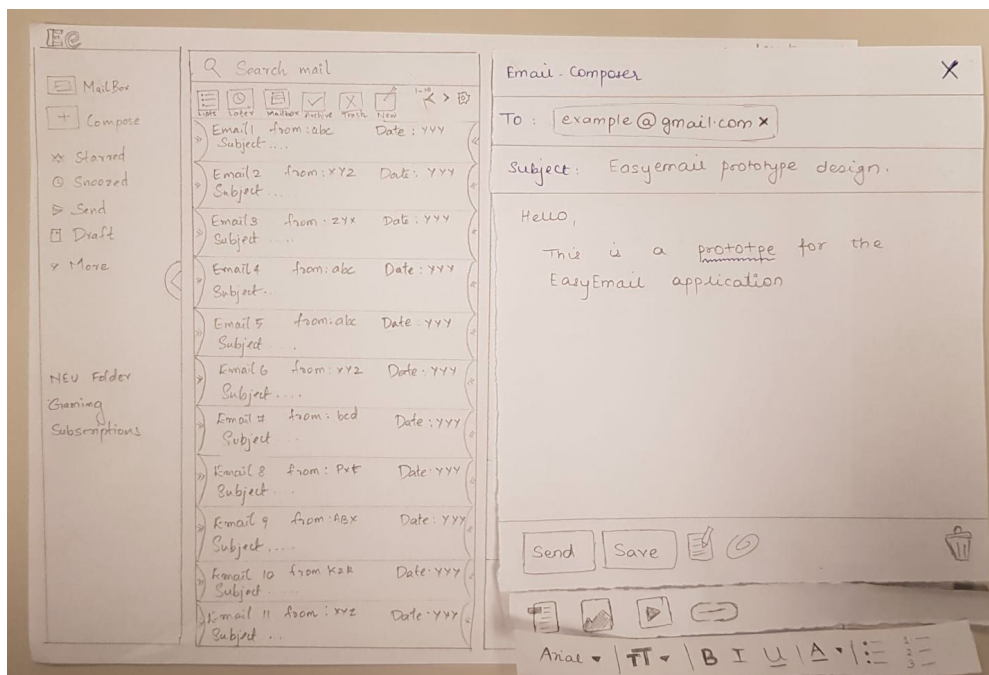 Ee
MailBox
Compose
Starred
Snoozed
Send
Draft
More
NEW Folder
Gaming
Subscriptions
Search mail
1-10
Lists Later Mailbox Archive Trash New
Email 1 from: abc Date: YYY
Subject....
Email 2 from: XYZ Date: YYY
Subject....
Email 3 from: ZYX Date: YYY
Subject....
Email 4 from: abc Date: YYY
Subject...
Email 5 from: abc Date: YYY
Subject .
Email 6 from: XYZ Date: YYY
Subject....
Email 7 from: bcd Date: YYY
Subject ..
Email 8 from: Pvt Date: YYY
Subject....
Email 9 from: ABX Date: YYY
Subject....
Email 10 from Date: YYY
Subject....
Email 11 from: XYZ Date: YYY
Subject ...
Email - Composer X
To: example@gmail.com x
Subject: Easyemail prototype design.
Hello,
This is a prototpe for the
EasyEmail application
Send Save
Arial TT B I U A 1 2 3